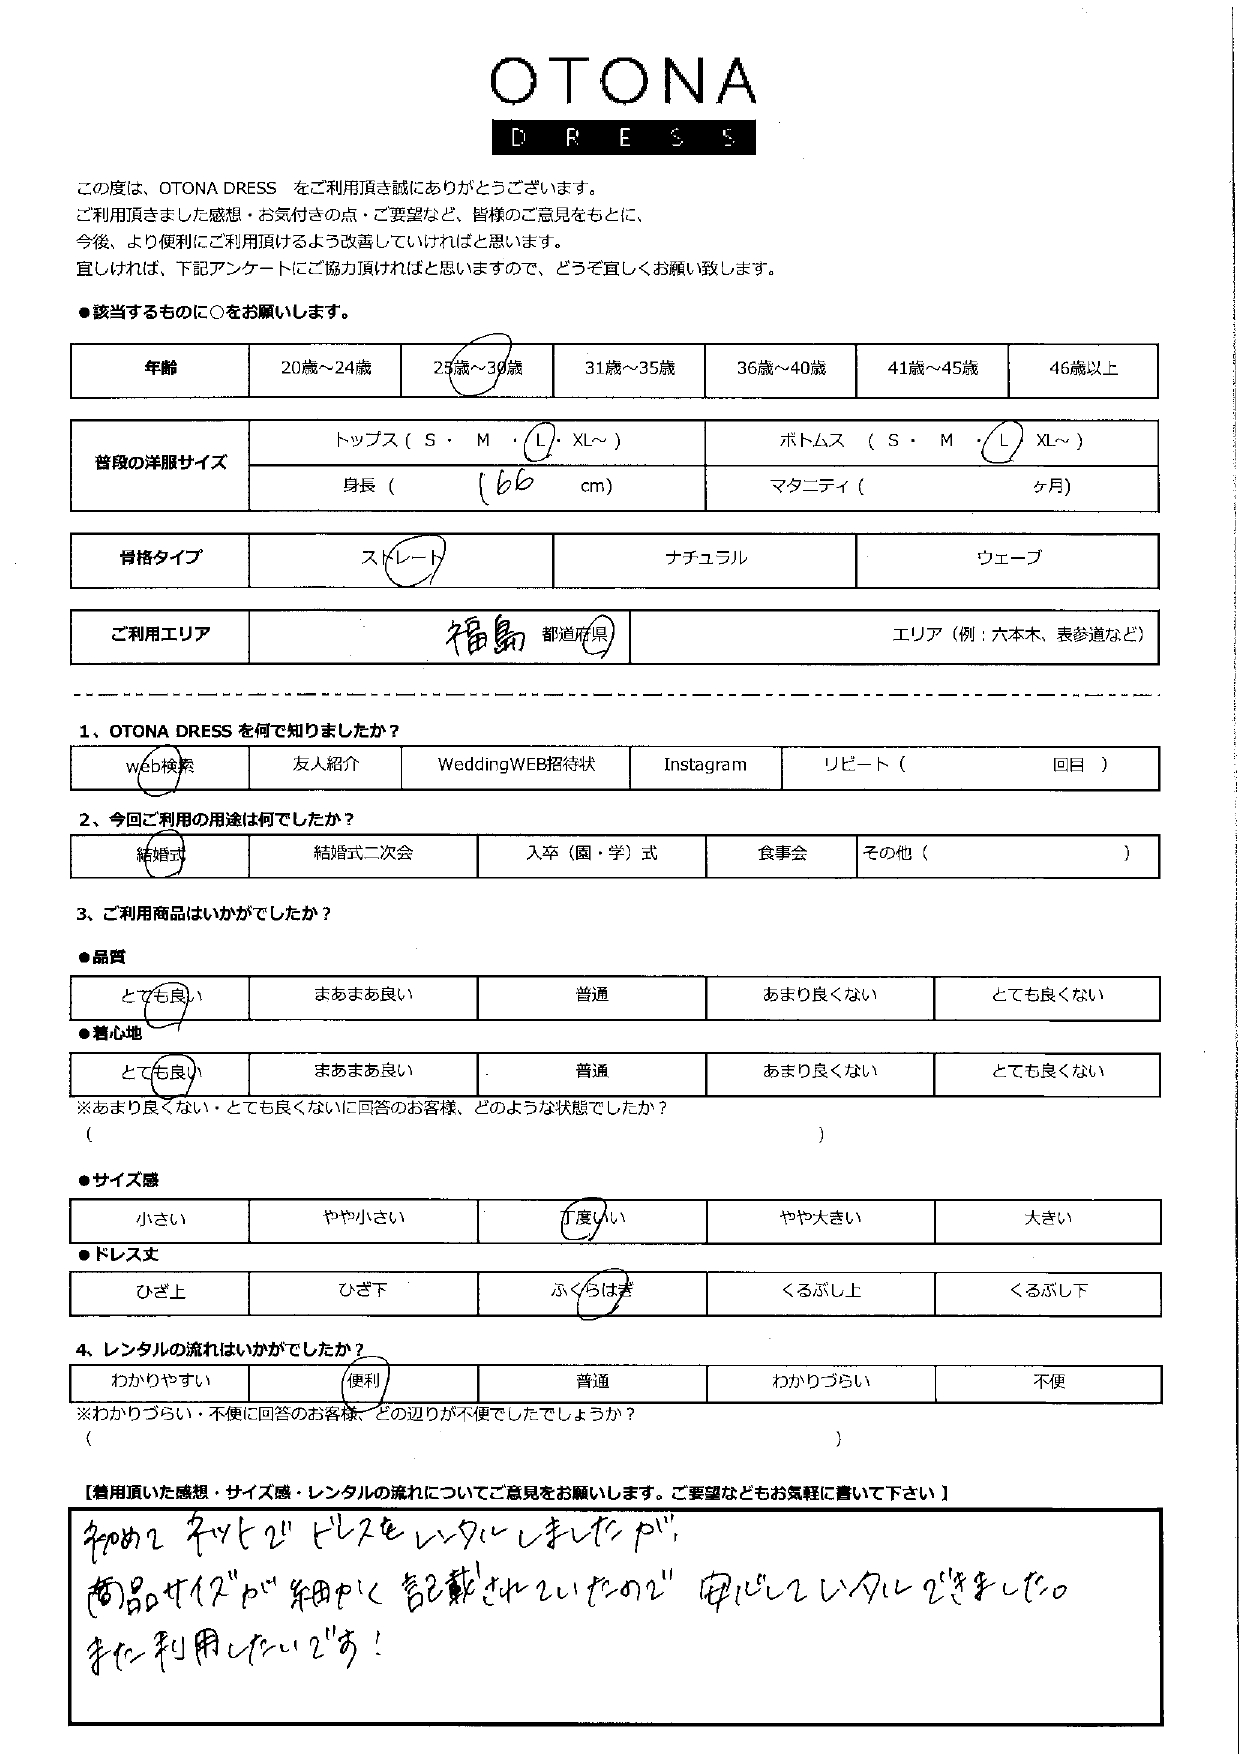 OTONA
DRESS
この度は、OTONA DRESS　をご利用頂き誠にありがとうございます。
ご利用頂きました感想・お気付きの点・ご要望など、皆様のご意見をもとに、
今後、より便利にご利用頂けるよう改善していければと思います。
宜しければ、下記アンケートにご協力頂ければと思いますので、どうぞ宜しくお願い致します。
●該当するものに○をお願いします。
年齢 20歳～24歳 25歳～30歳 31歳～35歳 36歳～40歳 41歳～45歳 46歳以上
普段の洋服サイズ
トップス ( S ・ M ・ L ・ XL～ ) ボトムス ( S ・ M ・ L XL～ )
身長 ( 166 cm) マタニティ ( ヶ月)
骨格タイプ ストレート ナチュラル ウェーブ
ご利用エリア 福島 都道府県 エリア（例：六本木、表参道など）
1、OTONA DRESS を何で知りましたか？
web検索 友人紹介 WeddingWEB招待状 Instagram リピート（ 回目 ）
2、今回ご利用の用途は何でしたか？
結婚式 結婚式二次会 入卒（園・学）式 食事会 その他（ ）
3、ご利用商品はいかがでしたか？
●品質
とても良い まあまあ良い 普通 あまり良くない とても良くない
●着心地
とても良い まあまあ良い 普通 あまり良くない とても良くない
※あまり良くない・とても良くないに回答のお客様、どのような状態でしたか？
( )
●サイズ感
小さい やや小さい 丁度いい やや大きい 大きい
●ドレス丈
ひざ上 ひざ下 ふくらはぎ くるぶし上 くるぶし下
4、レンタルの流れはいかがでしたか？
わかりやすい 便利 普通 わかりづらい 不便
※わかりづらい・不便に回答のお客様、どの辺りが不便でしたでしょうか？
( )
【着用頂いた感想・サイズ感・レンタルの流れについてご意見をお願いします。ご要望などもお気軽に書いて下さい 】
初めて ネットで ドレスを レンタルしましたが、
商品サイズが 細かく 記載されていたので 安心してレンタルできました。
また利用したいです！